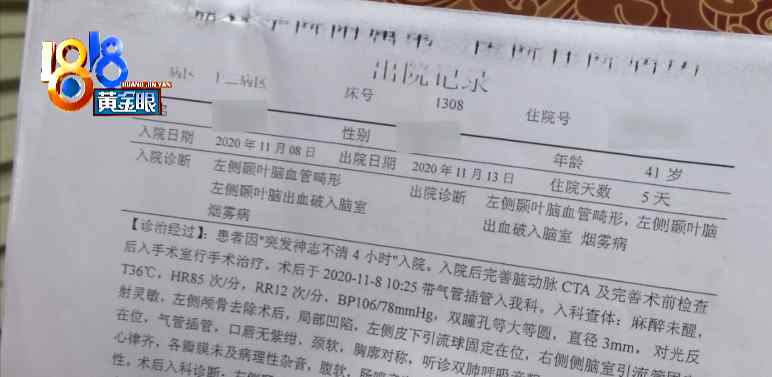 1818
HUANG JIN YAN
黄金眼
出院记录
病区
病区
床号
1308
住院号
性别
年龄
41 岁
入院日期
2020 年 11 月 08 日
出院日期
2020 年 11 月 13 日
住院天数
5 天
入院诊断
左侧颞叶脑血管畸形
左侧颞叶脑出血破入脑室
烟雾病
出院诊断
左侧颞叶脑血管畸形，左侧颞叶脑
出血破入脑室 烟雾病
【诊治经过】：患者因"突发神志不清 4 小时"入院。入院后完善脑动脉 CTA 及完善术前检查
后入手术室行手术治疗。术后于 2020-11-8 10:25 带气管插管入我科。入科查体：麻醉未醒，
T36℃，HR85 次/分，RR12 次/分，BP106/78mmHg，双瞳孔等大等圆，直径 3mm，对光反
射灵敏，左侧颅骨去除术后，局部凹陷，左侧皮下引流球固定在位，右侧侧脑室引流管固定
在位，气管插管，口唇无紫绀，颈软，胸廓对称，听诊双肺呼吸音
心律齐，各瓣膜未及病理性杂音，腹软，肠鸣
性。术后入科诊断：左侧